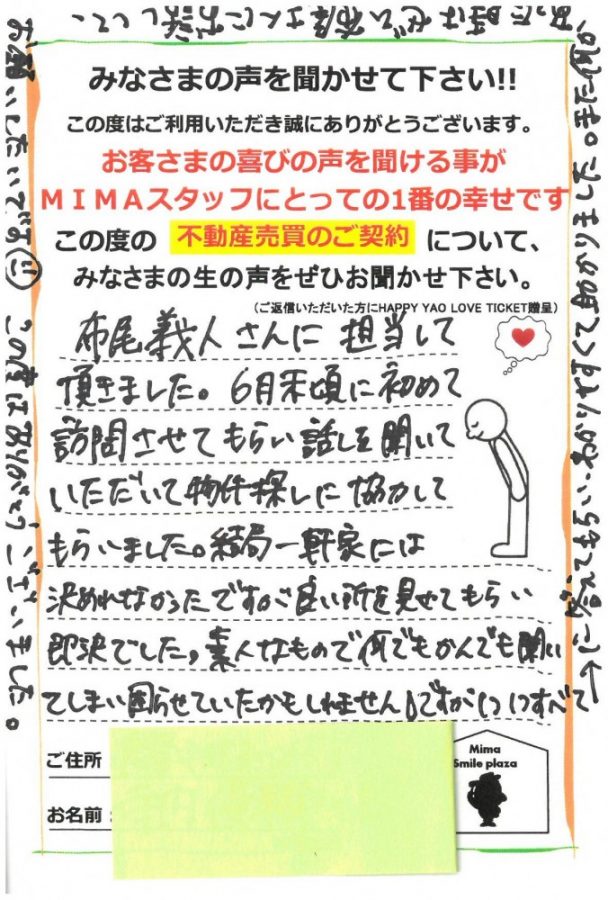 みなさまの声を聞かせて下さい!!
この度はご利用いただき誠にありがとうございます。
お客さまの喜びの声を聞ける事が
MIMAスタッフにとっての1番の幸せです
この度の 不動産売買のご契約 について、
みなさまの生の声をぜひお聞かせ下さい。
(ご返信いただいた方にHAPPY YAO LOVE TICKET贈呈)
布尾義人さんに担当して
頂きました。6月末頃に初めて
訪問させてもらい話しを聞いて
いただいて物件探しに協力して
もらいました。結局一軒家には
決めれなかったですが良い所を見せてもらい
即決でした。素人なもので何でもかんでも聞い
てしまい困らせていたかもしれませんですが1つ1つすべて
に答えてもらい、わかりやすくて助かりました。また何か
あった時はぜひ布尾さんにお話しして
お願いしたいです この度はありがとうございました。
ご住所
お名前:
Mima
Smile plaza